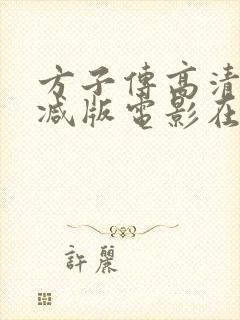 方子傳高清
减版電影在
許麗